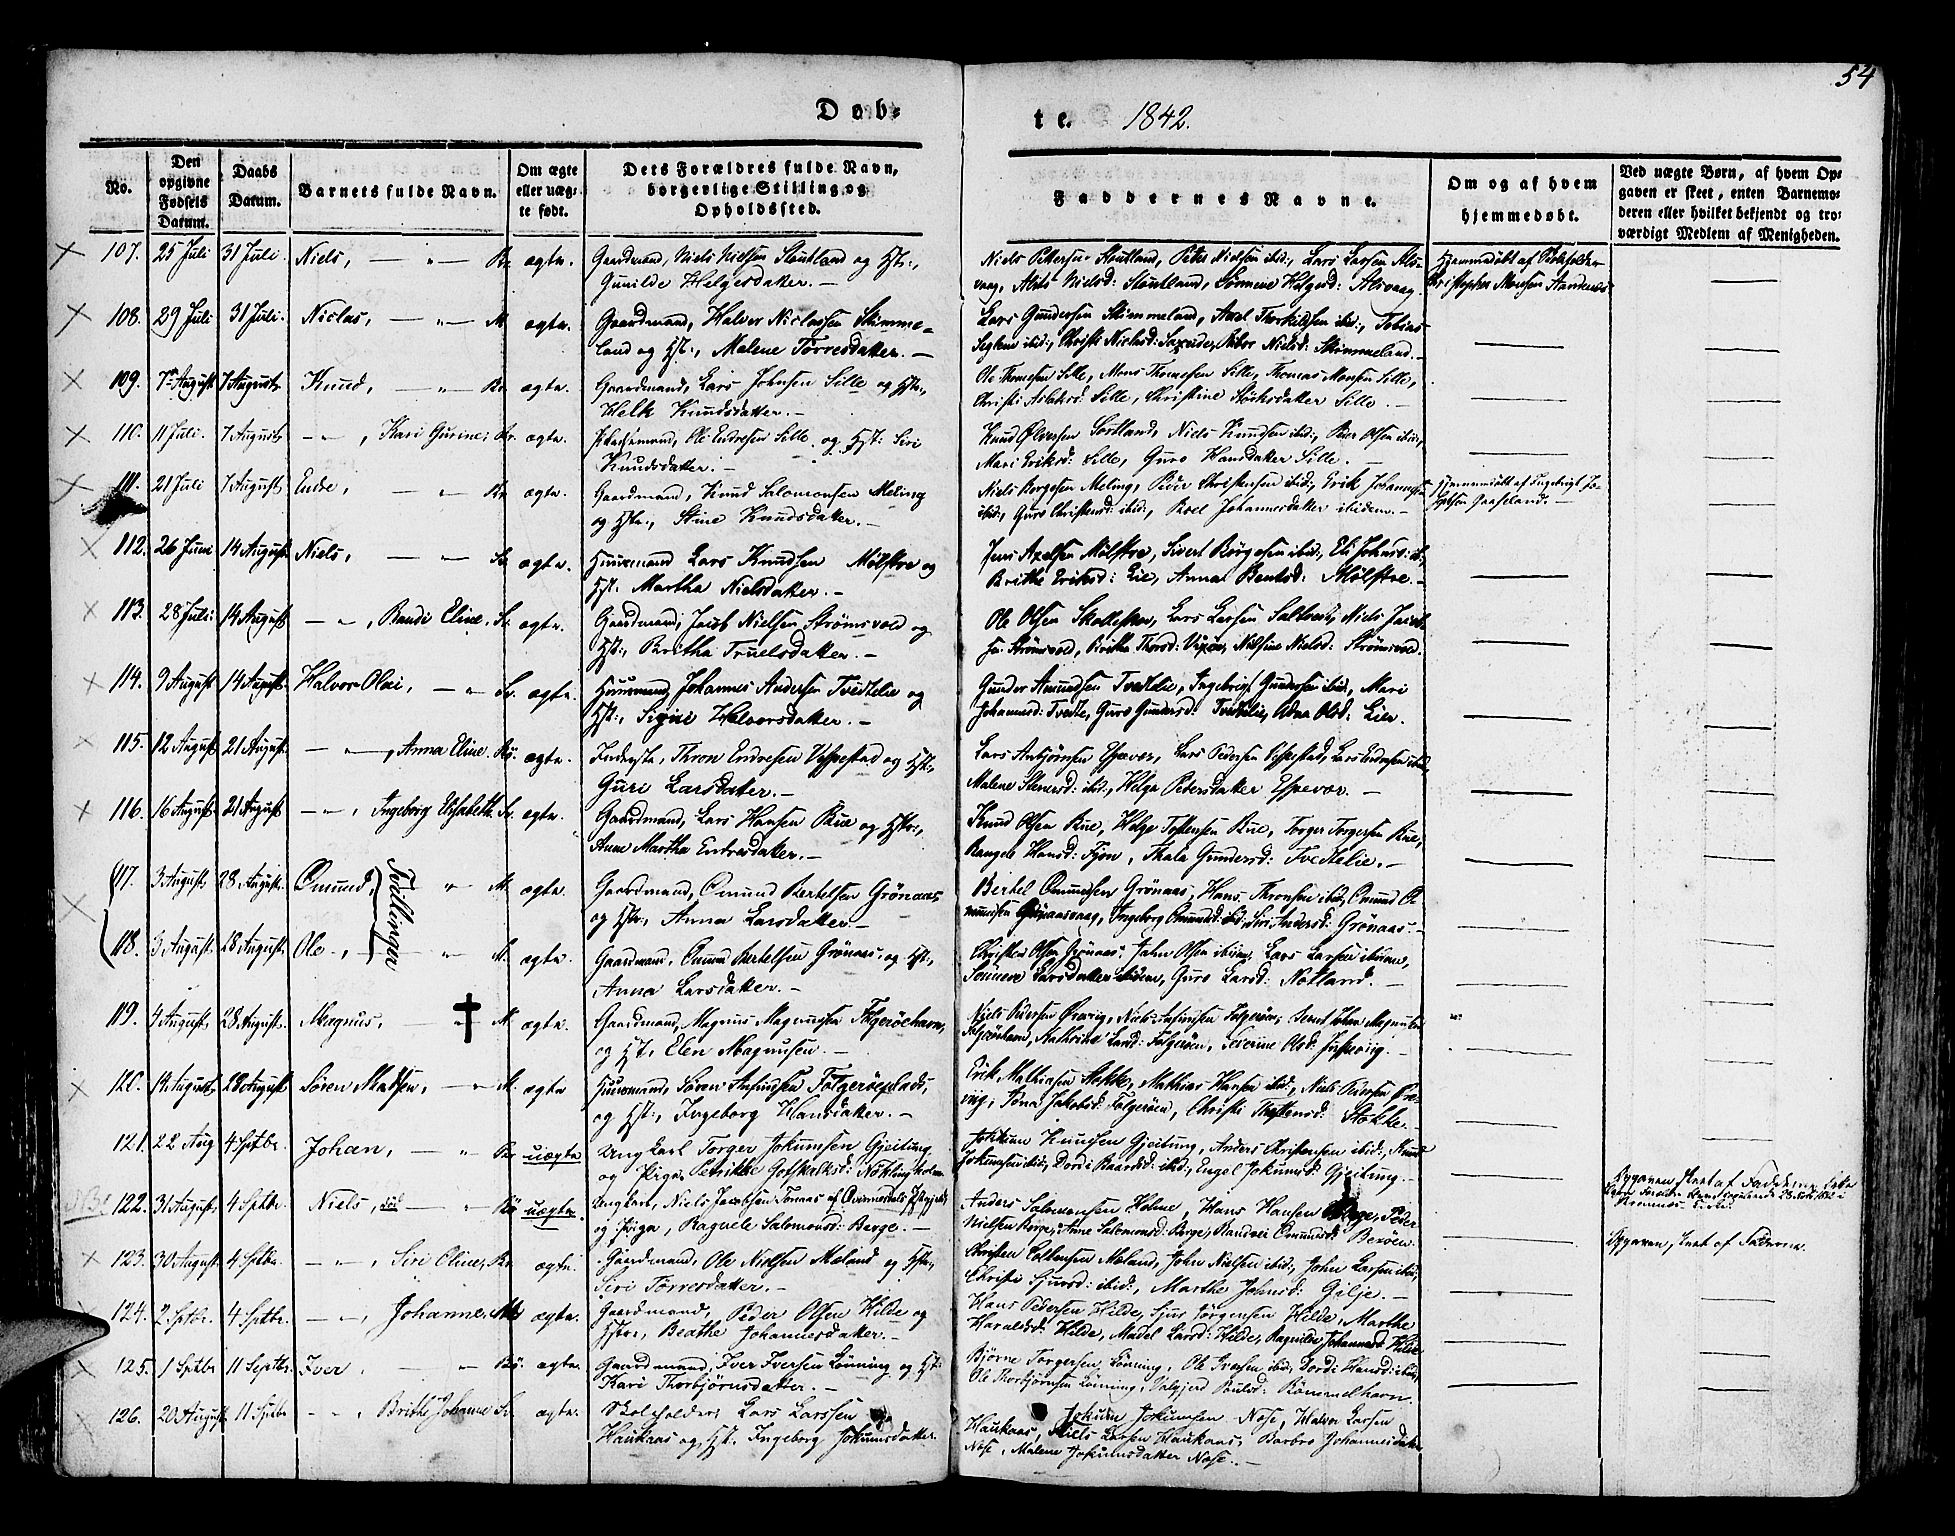 54
Døb-
te. 1842.
No.
Den opgivne Fødsels Datum.
Daabs Datum.
Barnets fulde Navn.
Om ægte eller uægte født.
Dets Forældres fulde Navn, borgerlige Stilling og Opholdssted.
Faddernes Navne.
Om og af hvem hjemmedøbt.
Ved uægte Børn, af hvem Opgaven er skeet, enten Barnemoderen eller hvilket bekjendt og troværdigt Medlem af Menigheden.
107. 25 Juli 31 Juli. Niels, — " — ægte. Gaardmand, Niels Nielsen Stoutland og Hst:,
Gunilde Helgesdatter. —
Niels Petersen Stoutland, Peter Nielsen ibid:, Lars Larsen Als-
vaag, Nielsd: Stoutland, Helgesd: Alsvaag.
Hjemmedøbt af
Christopher Monsen
108. 29 Juli 31 Juli. Niclas, — " — M. ægte. Gaardmand, Halvor Niclassen Skimme-
land og Hst:, Malene Torresdatter. —
Lars Gundersen Skimmeland, Axel Thorkildsen ibid:, Tobias
ibid:, Christi Nielsd: Nielsd: Skimmeland. —
109. 7de August 7 August Knud, — " — ægte. Gaardmand, Lars Johnsen Lille og Hst:,
Knudsdatter. —
Ole Thomesen Lille, Mons Thomesen Lille, Thomas Monsen Lille,
Christi Lille, Christine Lille. —
110. 11 Juli. 7 August — " —, Kari Gurine, ægte. Ole Endresen Lille og Hst: Siri
Knudsdatter. —
Knud Sortland, Niels Knudsen ibid:, Peder Olsen ibid:,
Mari Eriksd: Lille, Guro Hansdatter Lille. —
111. 21 Juli 7 August Endre, — " — ægte. Gaardmand, Knud Salomonsen Meling
og Hst:, Stine Knudsdatter. —
Niels Børgesen Meling, Peder Christensen ibid:, Erik Johannesen
ibid:, Guro Christensd: ibid:, Johannesdatter ibidem. —
Hjemmedøbt af Ingebrigt
112. 26 Juni 14 August. Niels, — " — ægte. Huusmand Lars Knudsen Mølstre og
Hst: Martha Nielsdatter. —
Jens Axelsen Mølstre, Sivert Børgesen ibid:, Eli
Brithe Eriksd: Eie, Anna Bentsd: Mølstre. —
113. 28 Juli. 14 August — " —, Randi Eline. ægte. Gaardmand, Jacob Nielsen Strømsvold og
Hst:, Britha Truelsdatter. —
Ole Olsen Lars Larsen Niels
Strømsvold, Britha Thorsd: Nilsine Nielsd: Strømsvold.
114. 9 August 14 August. Halvor Olai, — " ægte. Huusmand Johannes Andersen Tvedtelie og
Hst:, Signi Halvorsdatter. —
Gunder Amundsen Tvedtelie, Ingebrigt Gundersen ibid:, Mari
Johannesd: Tvedte, Guro Gundersd: Tvedtelie, Olsd: Lier.
115. 12 August 21 August. — " —, Anna Eline. ægte. Inderste, Thron Endresen Vespestad og Hst:,
Guri Larsdatter. —
Lars Asbjørnsen Espevær, Lars Pedersen Vespestad, Lars Endresen ibid:,
Malene Steensd: ibid:, Helga Pedersdatter Espevær. —
116. 16 August. 21 August — " —, Ingeborg Elisabeth. ægte. Gaardmand, Lars Hansen Bue og Hst:,
Anne Martha Endresdatter. —
Knud Olsen Bue, Helge Tostensen Bue, Torger Torgersen Bue,
Hansd: Fjon, Thala Gundersd: Tvedtelie. —
117. 3 August, 28 August. Omund, — " M. ægte. Gaardmand, Omund Bertelsen Grønaas
og Hst:, Anna Larsdatter. —
Tvillinger
Bertel Omundsen Grønaas, Hans Thronsen ibid:, Omund O-
mundsen Grønaasvaag, Ingeborg Omundsd: ibid: Siri Andersd: Grønaas. —
118. 3 August. 28 August. Ole, — " M. ægte. Gaardmand, Omund Bertelsen Grønaas og Hst:,
Anna Larsdatter. —
Christen Olsen Grønaas, John Olsen ibidem, Lars Larsen ibidem,
Larsdatter ibidem, Guro Larsd: Notland. —
119. 4 August, 28 August. Magnus, — " M. ægte. Gaardmand, Magnus Magnussen Folgerøehavn,
og Hst:, Elen Magnusen. —
Niels Pedersen Niels Folgerøen, Johan Magnussen
Cathrine Larsd: Folgerøen, Severine Olsd:
120. 12 August 28 August Søren Madsen, — " M. ægte Huusmand, Søren Folgerøeplads,
og Hst:, Ingeborg Hansdatter. —
Erik Mathiasen Stokke, Mathias Hansen ibid:, Niels Pedersen
Jakobsd: Folgerøen, Christi Stokke. —
121. 22 Aug 4 Sptbr. Johan, — " uægte Ungkarl Torger Jokumsen Gjeitung
og Pige Petrikke Gotskalksd:
Jokum Knudsen Gjeitung, Anders Christensen ibid:,
Jokumsen ibid:, Dordi Baardsd: ibid:, Engel Jokumsd: Gjeitung. —
Opgaven skeet af Fadderne
122. 31 August. 4 Sptbr. Niels, død uægte. Ungkarl, Niels Jacobsen
og Pige, Raquele Salomonsd: Børge. —
Anders Salomonsen Holme, Hans Hansen Børge, Peder
Nielsen Børge, Anne Salomonsd: Børge, Randvei Omundsd: Berøen.
Opgaven, skeet af Fadderne.
123. 30 August. 4 Sptbr. — " —, Siri Oline, ægte. Gaardmand, Ole Nielsen Mæland og Hst:,
Siri Torresdatter. —
Christen Mæland, John Nielsen ibid:, John Larsen ibid:,
Christi Sjursd: ibid:, Marthe Johnsd: Gilje. —
124. 2 Sptbr. 4 Sptbr. — " —, Johanne, ægte. Gaardmand, Peder Olsen Hilde og
Hst:, Beathe Johannesdatter. —
Hans Pedersen Hilde, Sjur Jørgensen Hilde, Marthe
Haraldsd: Hilde, Madel Larsd: Hilde, Raquilde Johannesd: Hilde
125. 1 Sptbr 11 Septbr. Iver, — " ægte. Gaardmand, Iver Iversen Lønning og Hst:
Kari Thorbjørnsdatter. —
Bjørne Torgersen Lønning, Ole ibid: Dordi Hansd: ibid:
Ole Thorbjørnsen Lønning, Valgjerd Poulsd: Rømmelhavn.
126. 20 August 11 Sptbr — " —, Brithe Johanne ægte. Skoleholder, Lars Larssen
Haukaas og Hst. Ingeborg Jokumsdatter.
Jokum Jokumsen Nose, Halvor Larsen
Haukaas, Niels Larsen Haukaas, Barbro Johannesdatter
Nose, Malene Jokumsdatter Nose. —